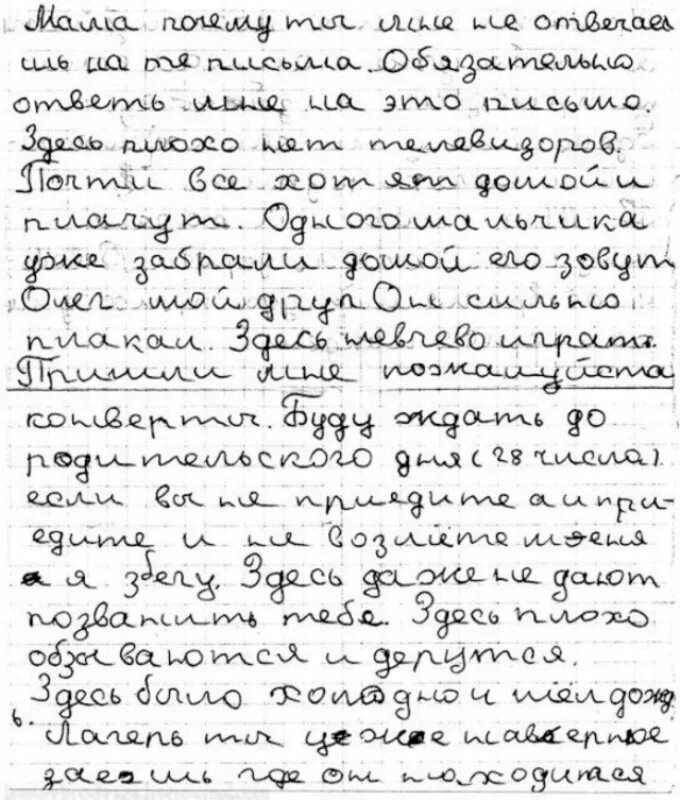 Мама почему ты мне не отвечае
шь на те письма. Обязательно
ответь мне на это письмо.
Здесь плохо нет телевизоров.
Почти все хотят домой и
плачут. Одного мальчика
уже забрали домой его зовут
Олег мой друг Он сильно
плакал. Здесь невчево играть.
Пришли мне пожалуйста
конверты. Буду ждать до
родительского дня (28 числа)
если вы не приедите а и при-
едите и не возмёте меня
я збегу. Здесь даже не дают
позванить тебе. Здесь плохо
обзываются и дерутся.
Здесь было холодно и шёл дожд
ь. Лагерь ты уже наверное
заешь где он находится